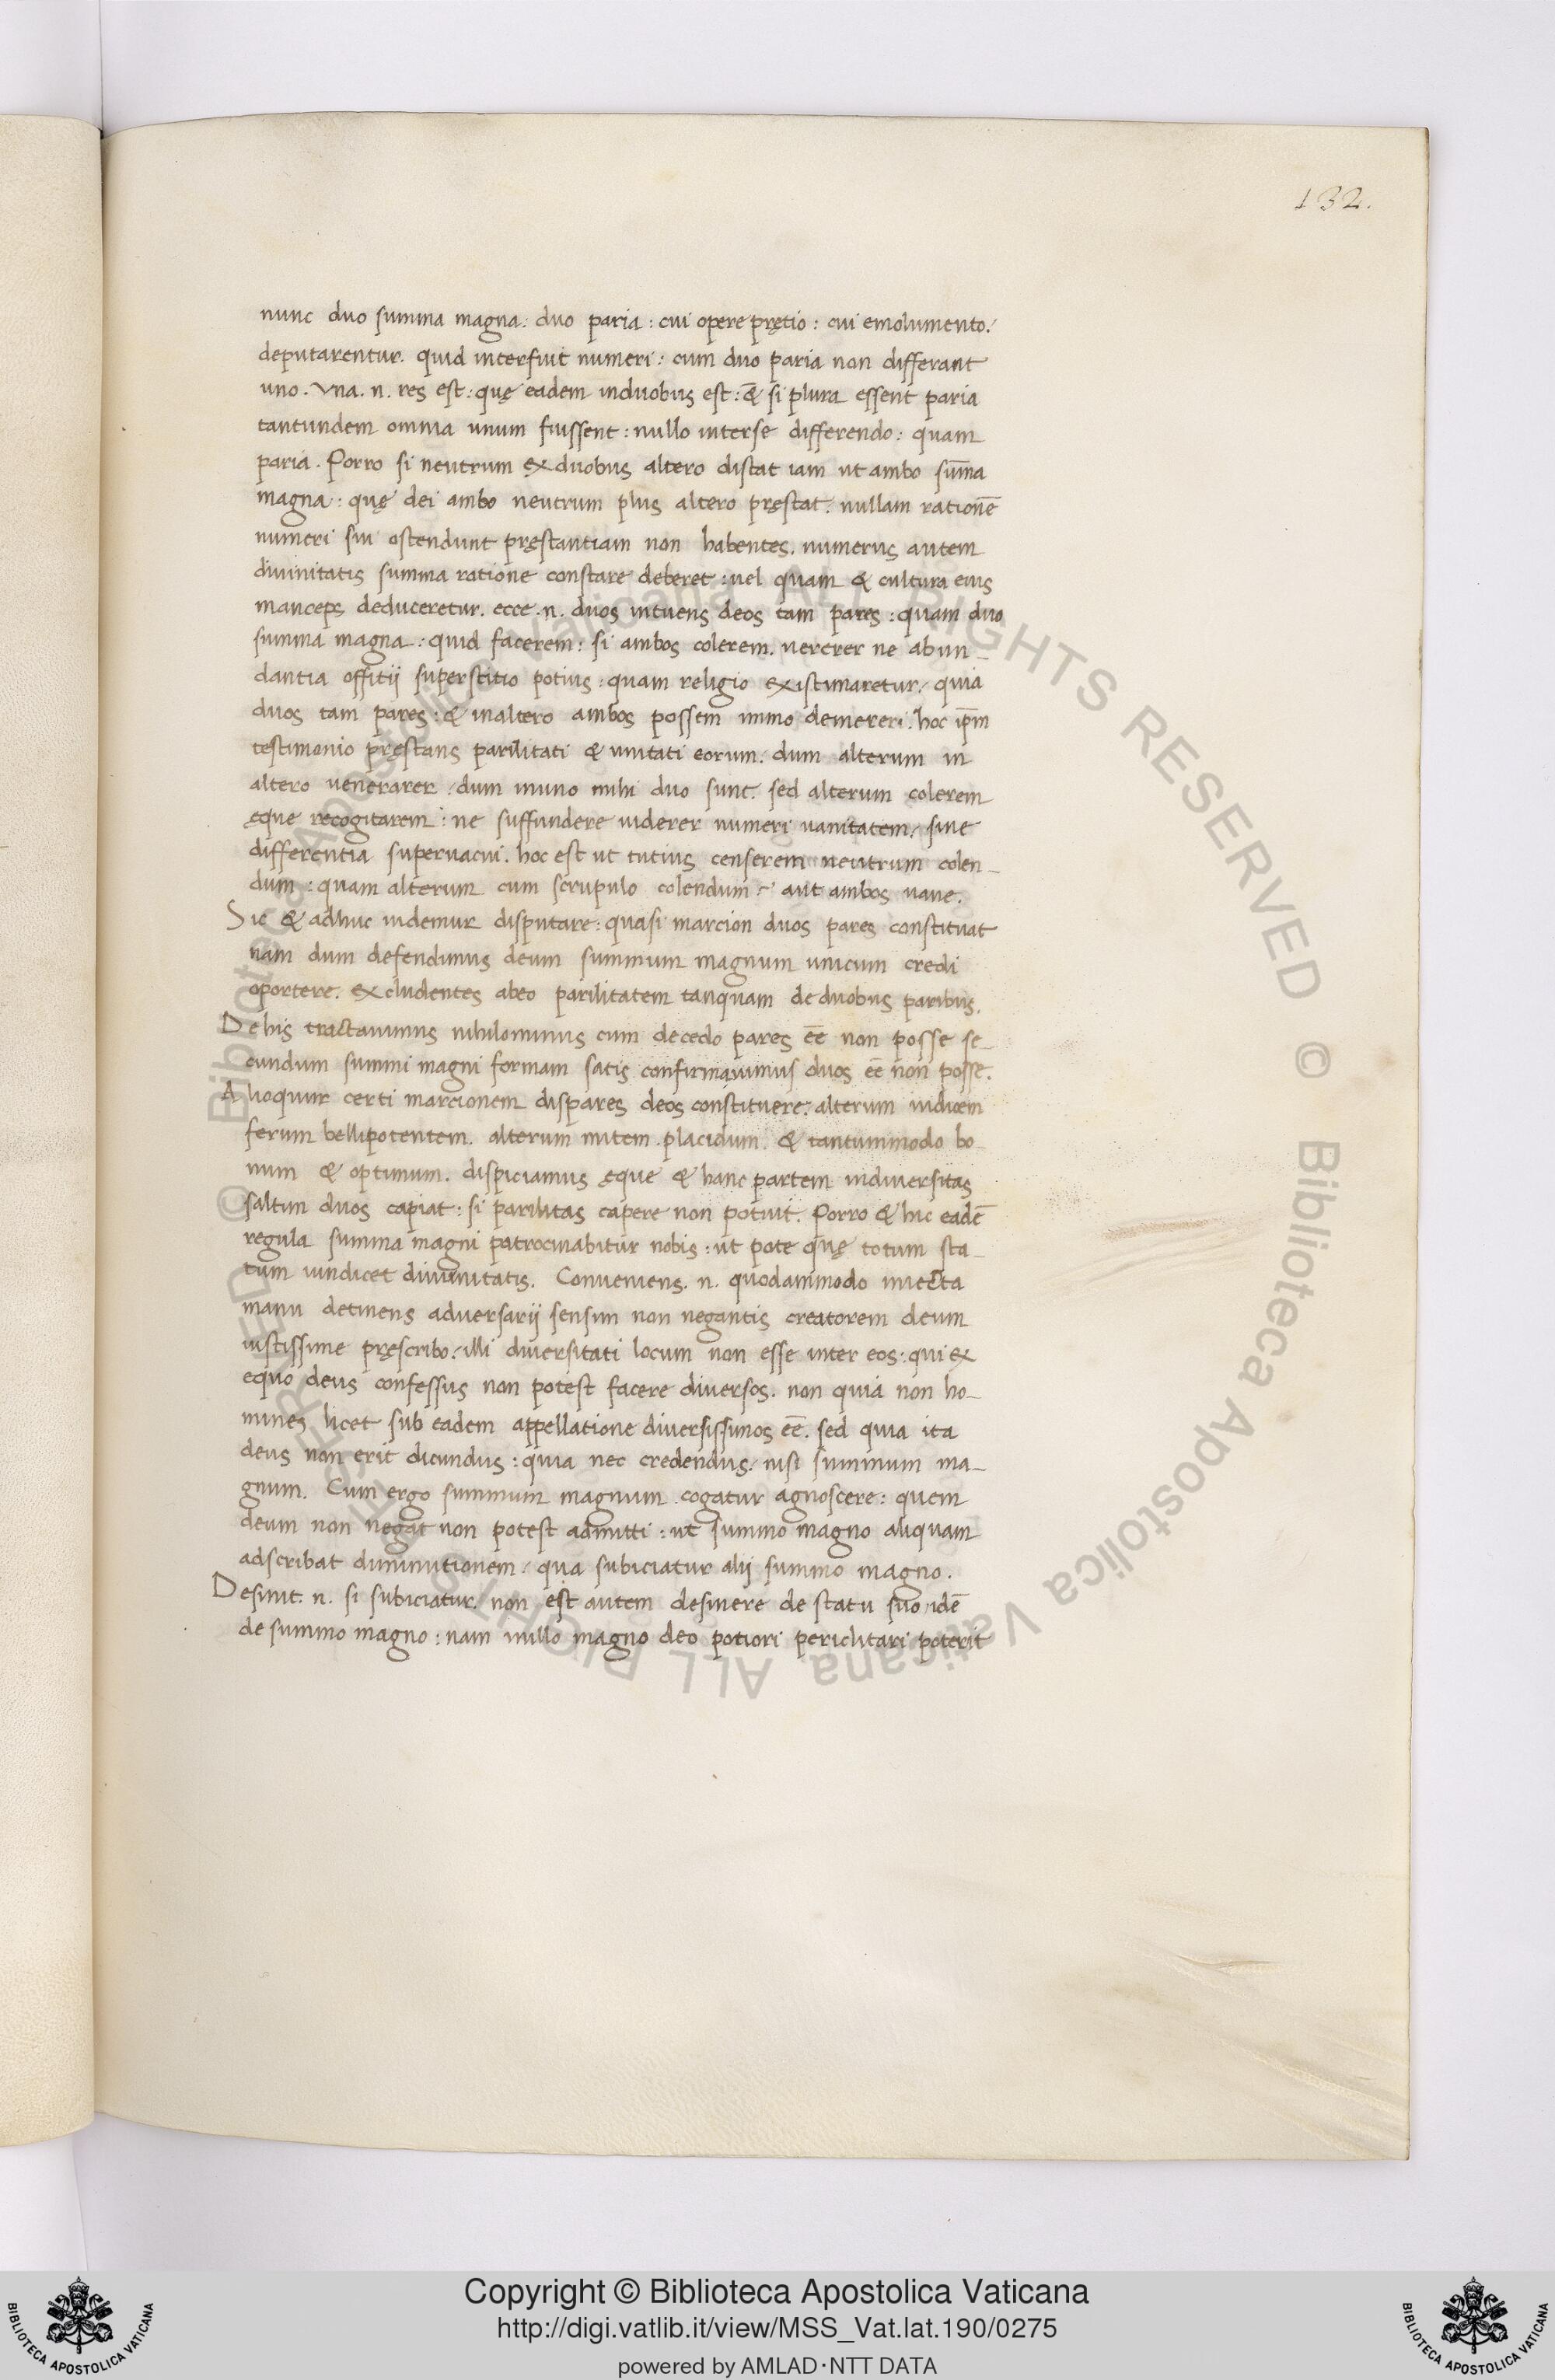 132.
nunc duo summa magna: duo paria: cui opere pretio: cui emolumento.
deputarentur. quid interfuit numeri: cum duo paria non differant
uno. Vna .n. res est: quę eadem induobus est: & si plura essent paria
tantundem omnia unum fuissent: nullo interse differendo: quam
paria. Porro si neutrum exduobus altero distat iam ut ambo sum̄a
magna: quę dei ambo neutrum plus altero pręstat. nullam rationē
numeri sui ostendunt pręstantiam non habentes. numerus autem
diuinitatis summa ratione constare deberet: uel quam & cultura eius
manceps deduceretur. ecce .n. duos intuens deos tam pares: quam duo
summa magna: quid facerem: si ambos colerem. uererer ne abun-
dantia offitij superstitio potius: quam religio existimaretur: quia
duos tam pares: & inaltero ambos possem inuno demereri. hoc ip̄m
testimonio pręstans parilitati & unitati eorum. dum alterum in
altero uenerarer: dum inuno mihi duo sunt. sed alterum colerem
ęque recogitarem: ne suffundere uiderer numeri uanitatem: sine
differentia superuacui. hoc est ut tutius censerem neutrum colen-
dum: quam alterum cum scrupulo colendum: aut ambos uane.
Sic & adhuc uidemur disputare: quasi marcion duos pares constituat
nam dum defendimus deum summum magnum unicum credi
oportere. excludentes abeo parilitatem tanquam de duobus paribus.
De his tractauimus nihilominus cum decedo pares eē non posse se-
cundum summi magni formam satis confirmauimus duos eē non posse.
Alioquin certi marcionem dispares deos constituere: alterum iudicem
ferum bellipotentem. alterum mitem. placidum. & tantummodo bo-
num & optimum. dispiciamus ęque & hanc partem indiuersitas
saltim duos capiat: si parilitas capere non potuit. Porro & hic eadē
regula summa magni patrocinabitur nobis: ut pote quę totum sta-
tum uindicet diuinitatis. Conueniens .n. quodammodo iniecta
manu detinens aduersarij sensim non negantis creatorem deum
iustissime pręscribo: illi diuersitati locum non esse inter eos: qui ex
equo deus confessus non potest facere diuersos. non quia non ho-
mines licet sub eadem appellatione diuersissimos eē. sed quia ita
deus non erit dicundus: quia nec credendus: nisi summum ma-
gnum. Cum ergo summum magnum cogatur agnoscere: quem
deum non negat non potest admitti: ut summo magno aliquam
adscribat diminutionem: qua subiciatur alij summo magno.
Desinit .n. si subiciatur: non est autem desinere de statu suo idē
de summo magno: nam nullo magno deo potiori periclitari poterit
© Biblioteca Apostolica Vaticana ALL RIGHTS RESERVED © Biblioteca Apostolica Vaticana ALL RIGHTS RESERVED
Copyright © Biblioteca Apostolica Vaticana
http://digi.vatlib.it/view/MSS_Vat.lat.190/0275
powered by AMLAD·NTT DATA
BIBLIOTECA APOSTOLICA VATICANA
BIBLIOTECA APOSTOLICA VATICANA